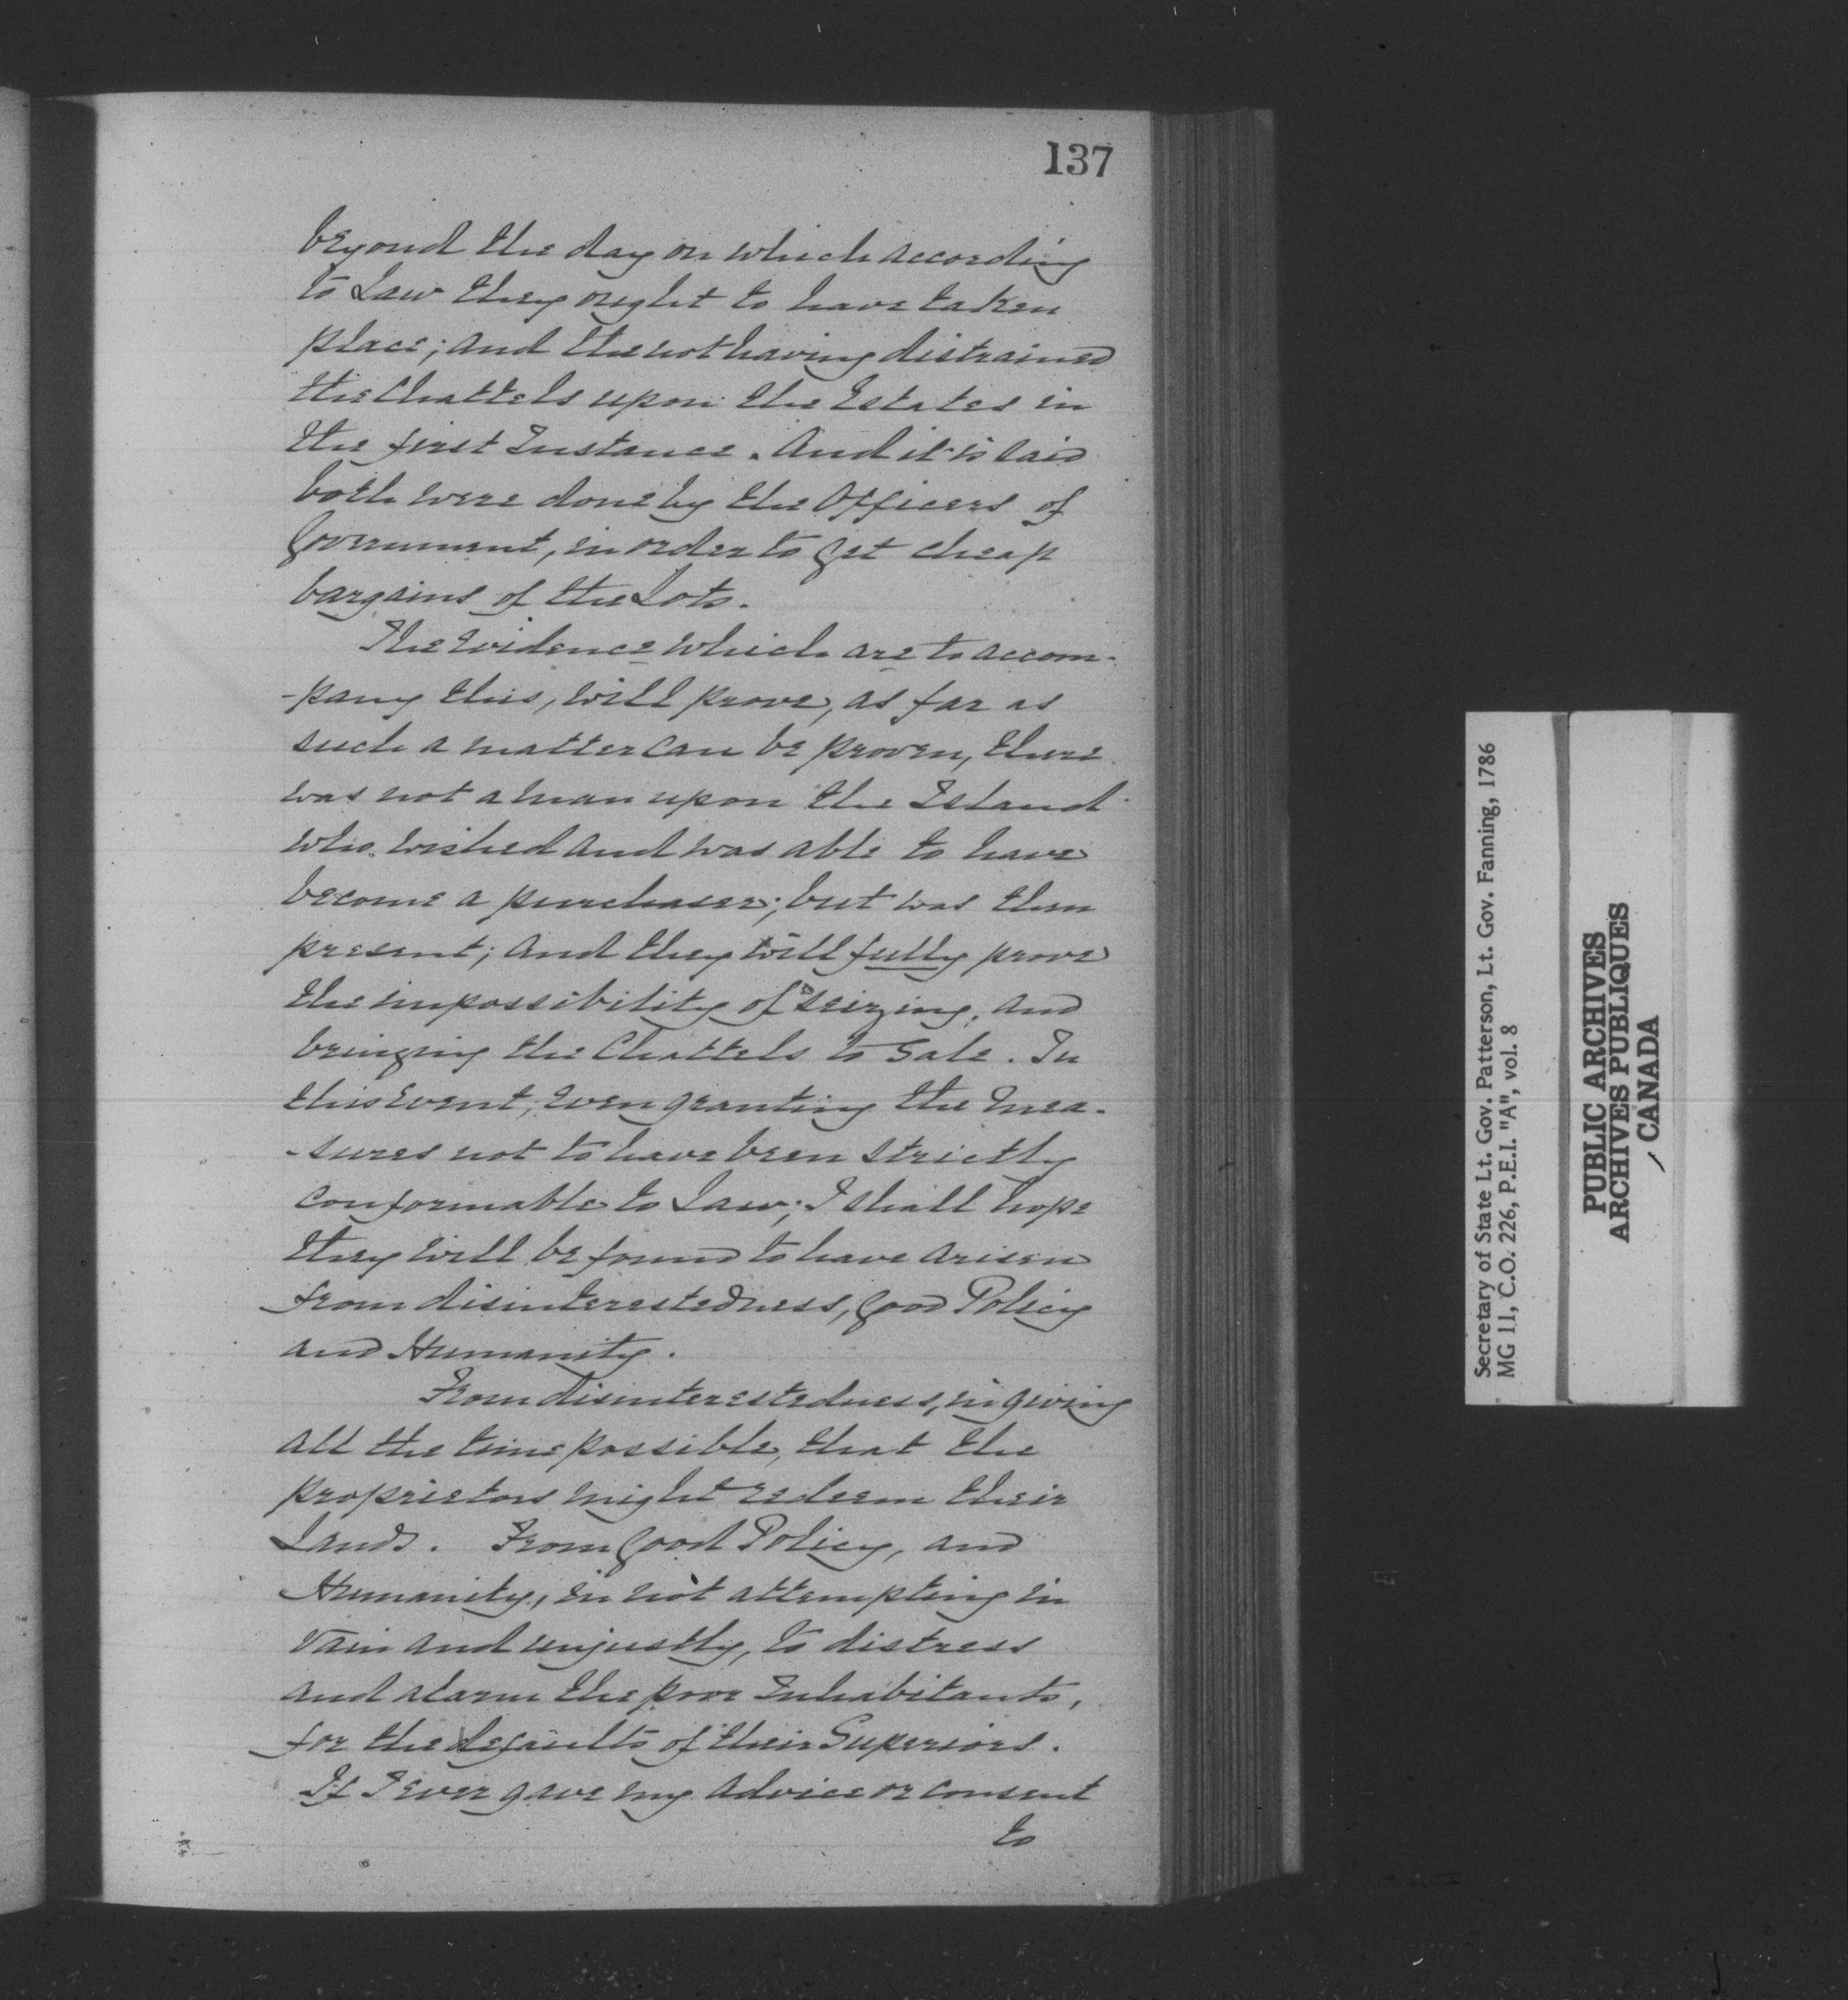 137
beyond the day on which according
to Law they ought to have taken
place; and the not having distrained
the Chattels upon the Estates in
the first Instance. And it is said
both were done by the Officers of
Government, in order to get cheap
bargains of the Lots.
The Evidence which are to accom-
-pany this, will prove, as far as
such a matter can be proven, there
was not a man upon the Island
who wished and was able to have
become a purchaser; but was then
present; and they will fully prove
the impossibility of seizing, and
bringing the Chattels to Sale. In
this Event, even granting the Mea-
-sures not to have been strictly
conformable to Law; I shall hope
they will be found to have arisen
from disinterestedness, good Policy
and Humanity.
From disinterestedness, in giving
all the time possible, that the
proprietors might redeem their
Lands. From good Policy, and
Humanity, in not attempting in
vain and unjustly, to distress
and alarm the poor Inhabitants,
for the defaults of their Superiors.
If I ever gave my advice or consent
to
Secretary of State Lt. Gov. Patterson, Lt. Gov. Fanning, 1786
MG 11, C.O. 226, P.E.I. "A", vol. 8
PUBLIC ARCHIVES
ARCHIVES PUBLIQUES
CANADA